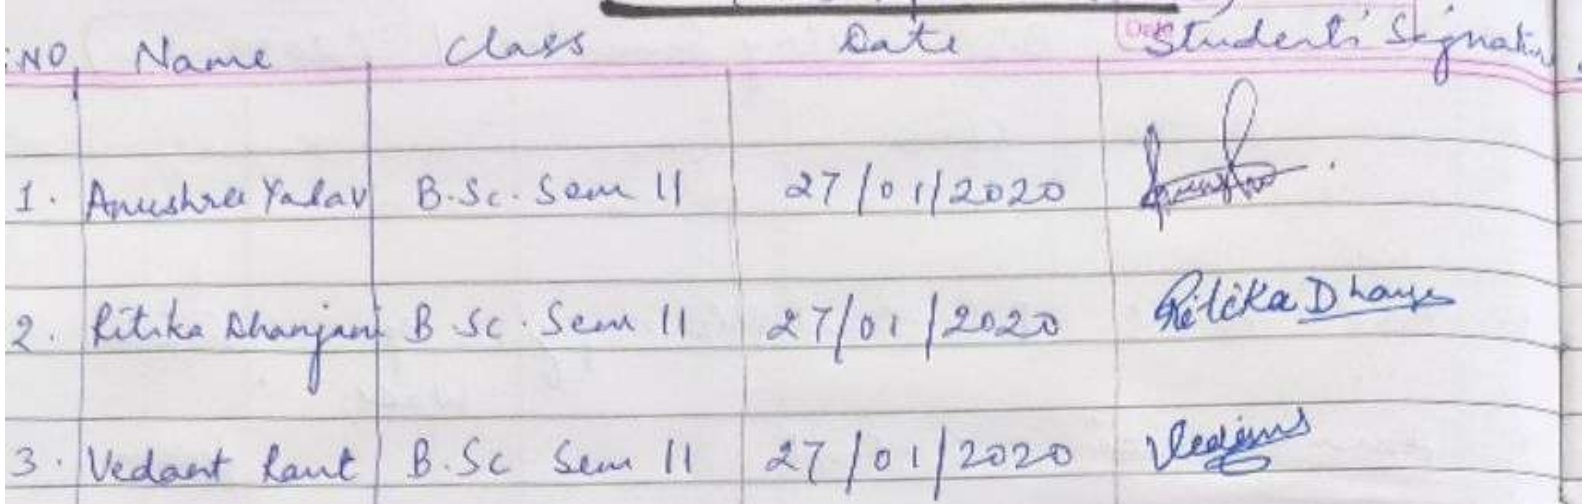 S.NO. Name Class Date Student's Signature
1. Anushree Yadav B.Sc. Sem II 27/01/2020
2. Ritika Dhanjani B.Sc. Sem II 27/01/2020 Ritika Dhanj
3. Vedant Raut B.Sc Sem II 27/01/2020